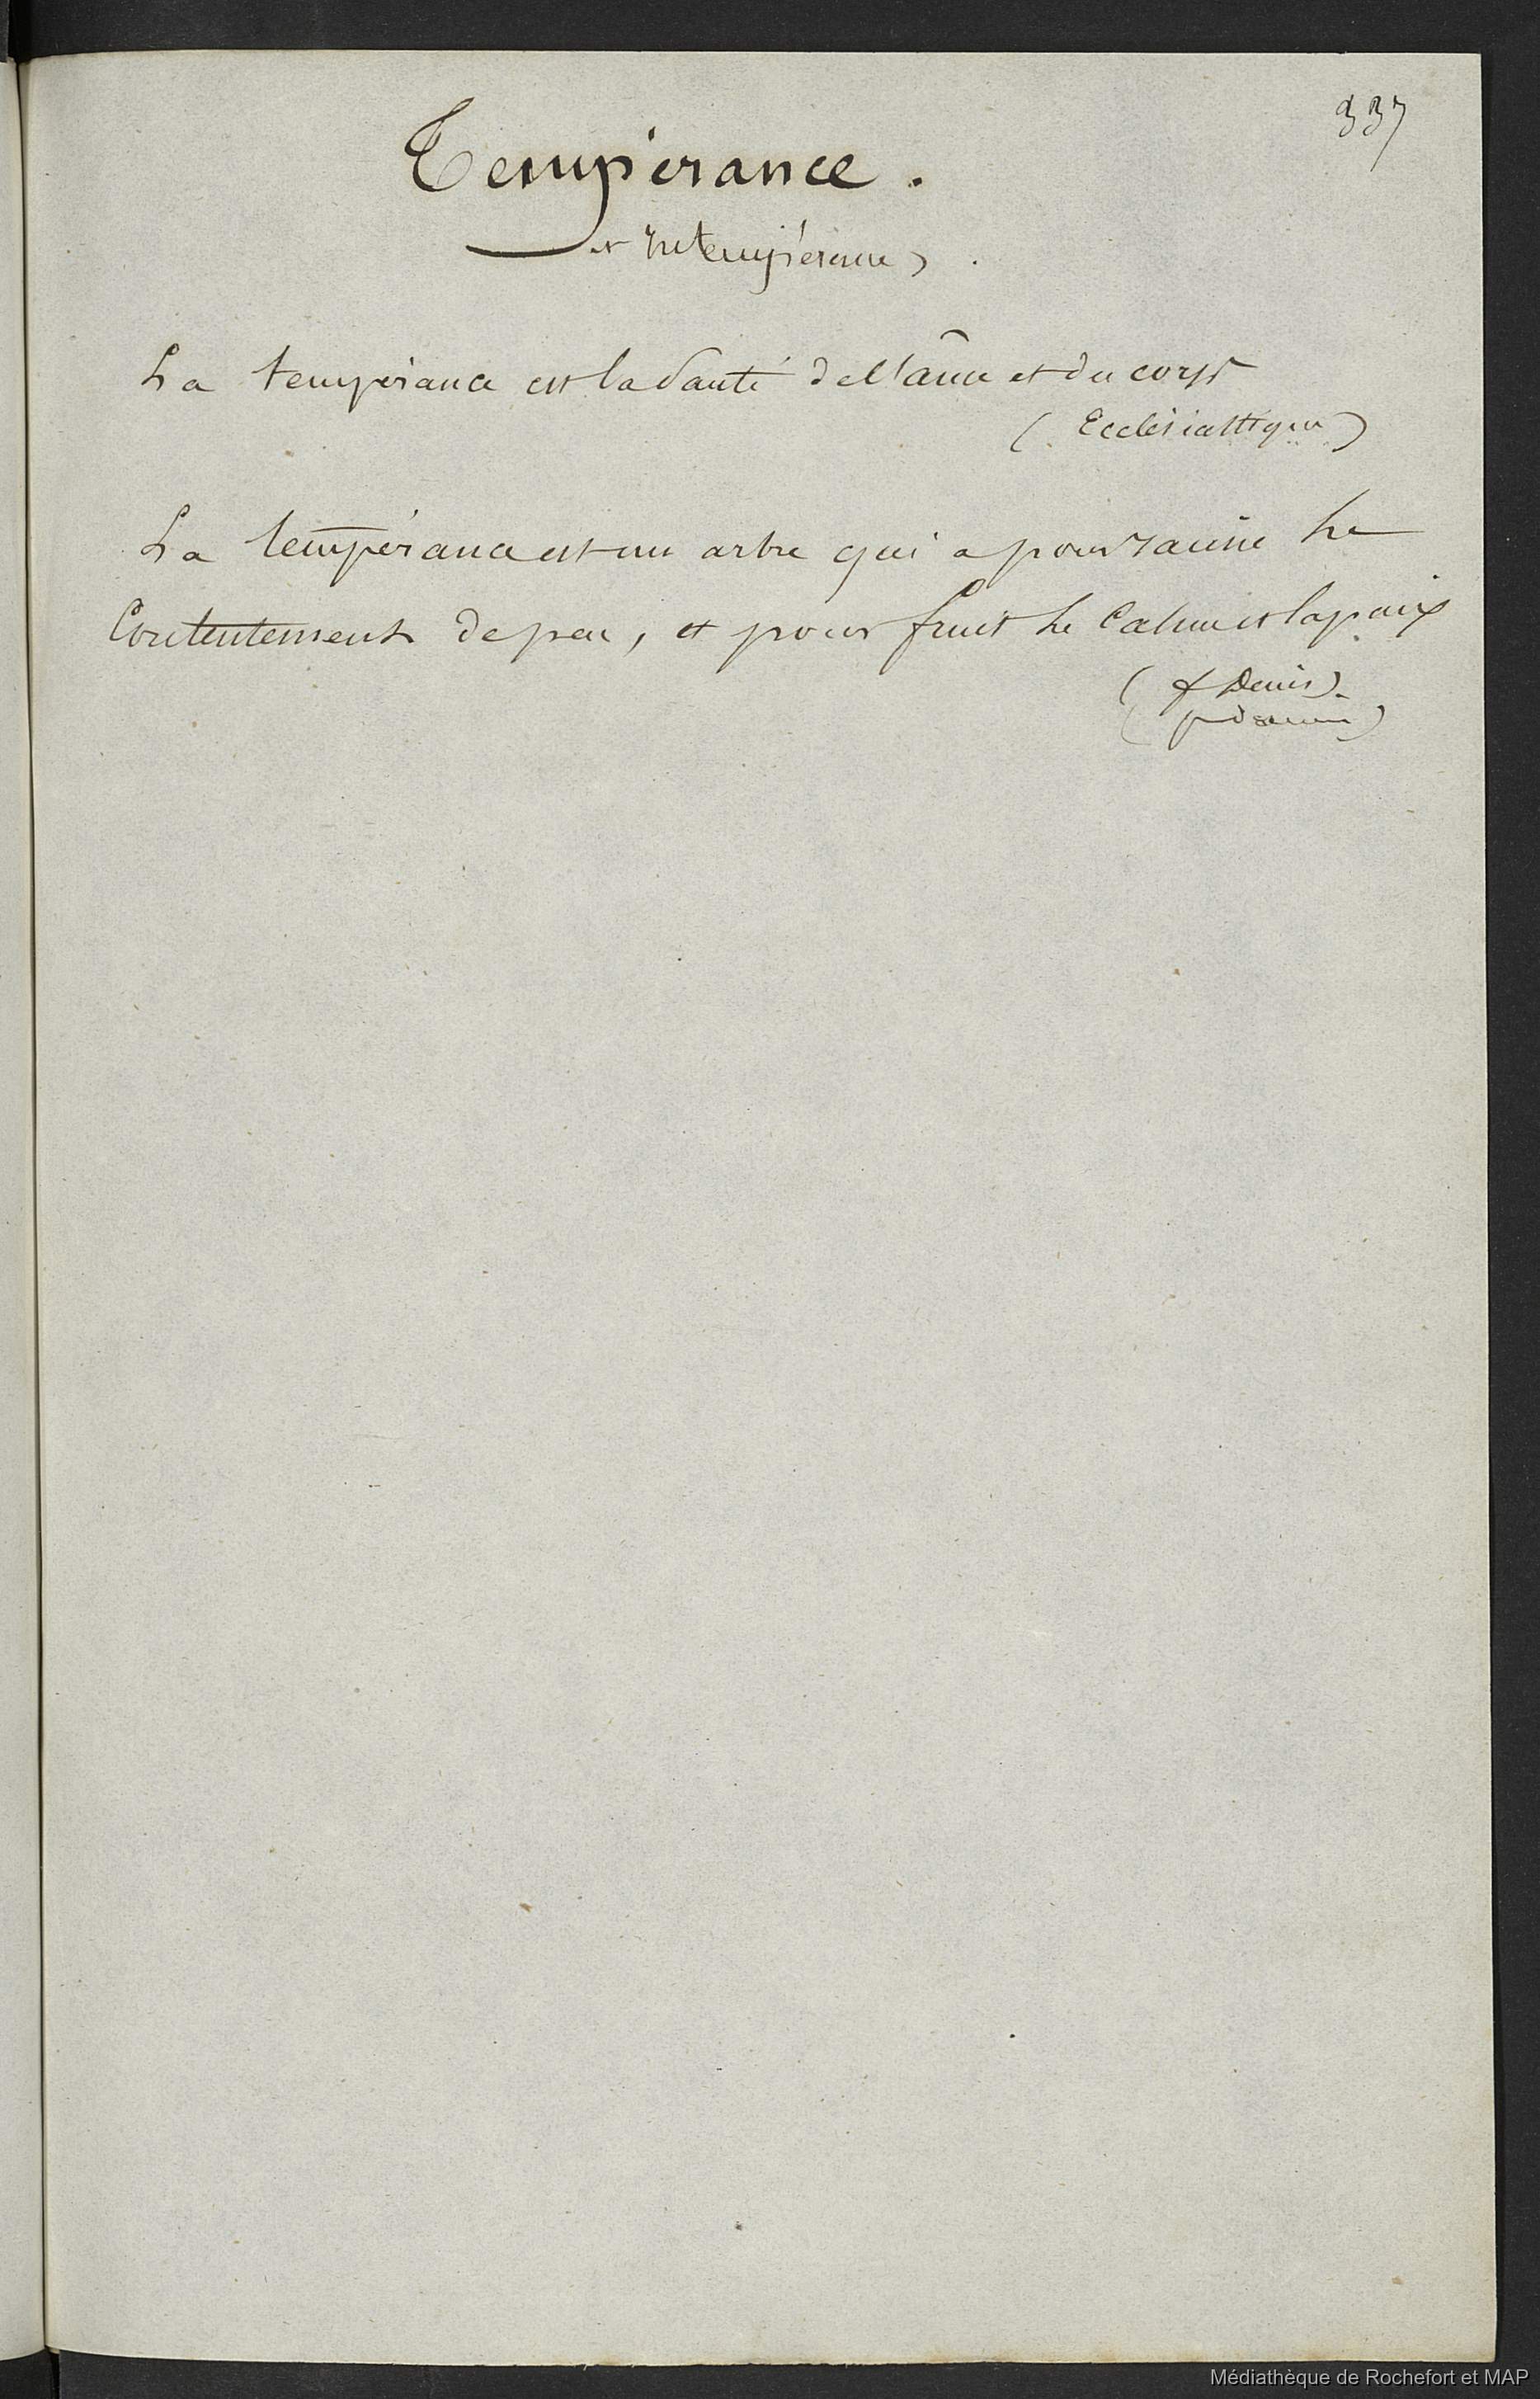 337
Tempérance.
et Intempérance.
La tempérance est la santé de l'âme et du corps
(Ecclésiastique)
La tempérance est un arbre qui a pour racine le
Contentement de peu, et pour fruit le Calme et la paix
(f Denis)
Médiathèque de Rochefort et MAP